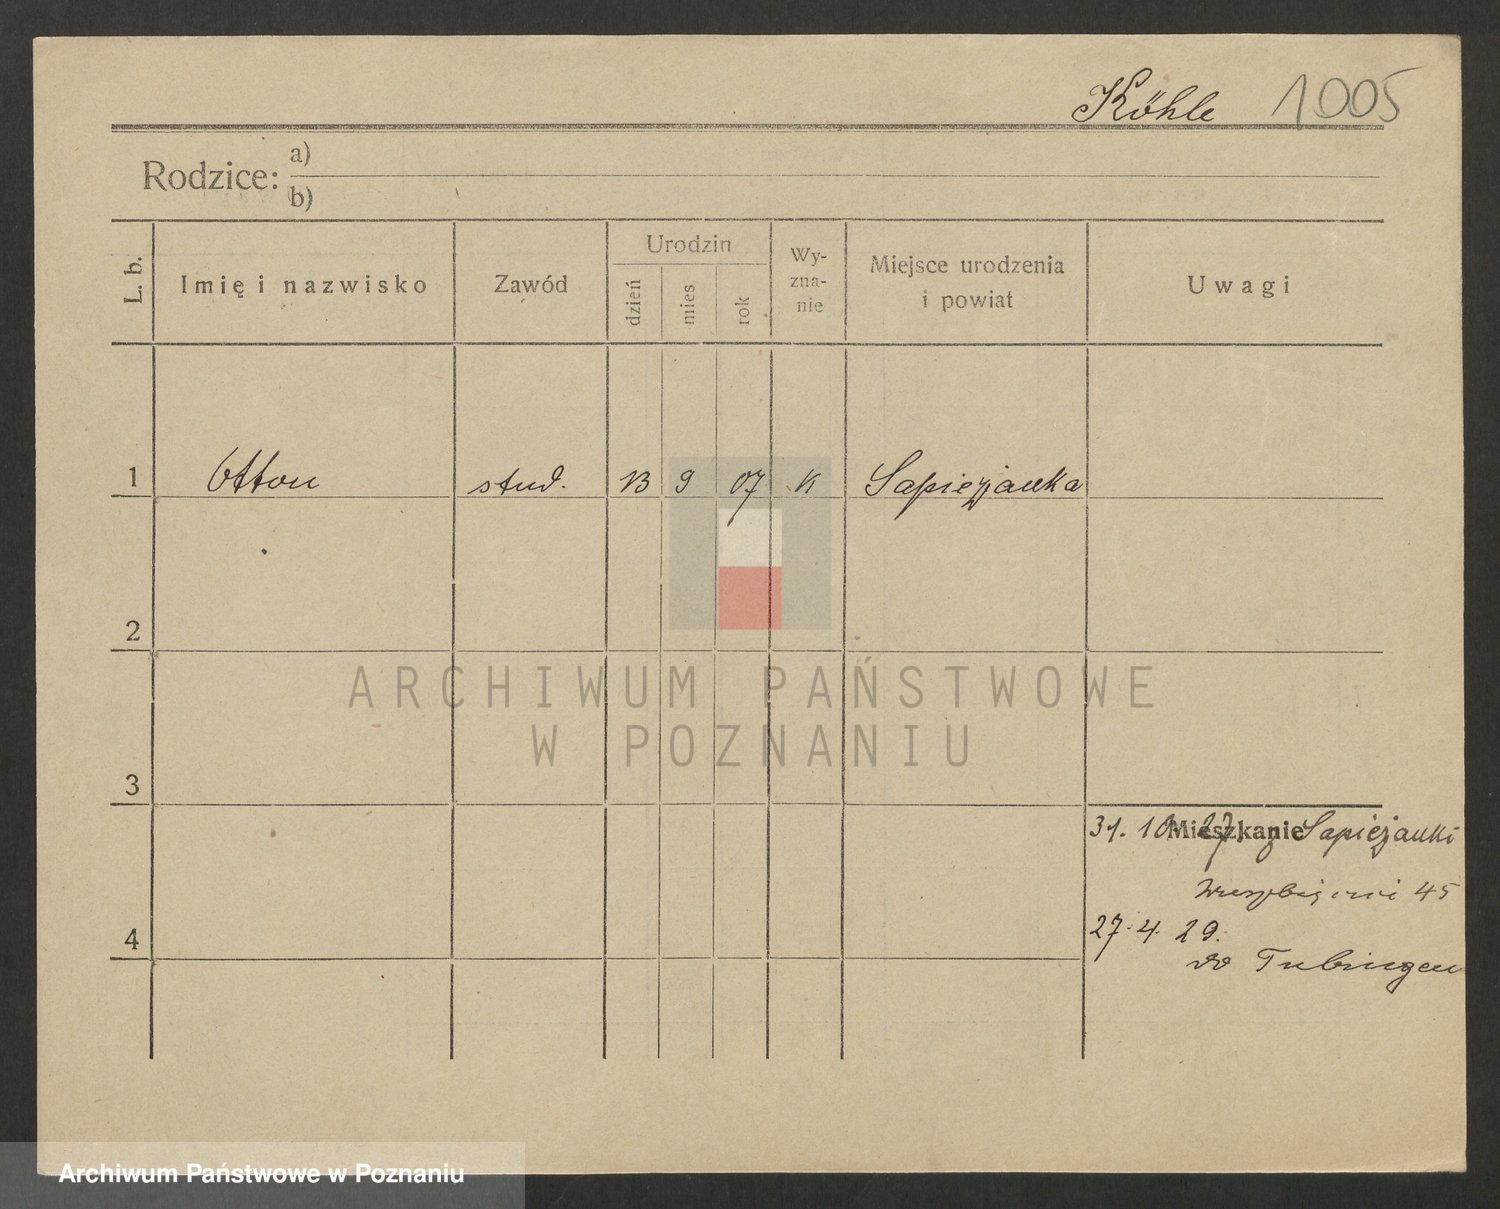 Köhle 1005
Rodzice: a)
b)
L. b. Imię i nazwisko Zawód Urodzin dzień mies rok Wy-zna-nie Miejsce urodzenia i powiat Uwagi
1 Otton stud. 13 9 07 K Sapieżanka
2
ARCHIWUM PAŃSTWOWE
W POZNANIU
3
Mieszkanie
31. 10 27. z Sapieżanki
45
4
27. 4. 29.
do Tubingen
Archiwum Państwowe w Poznaniu